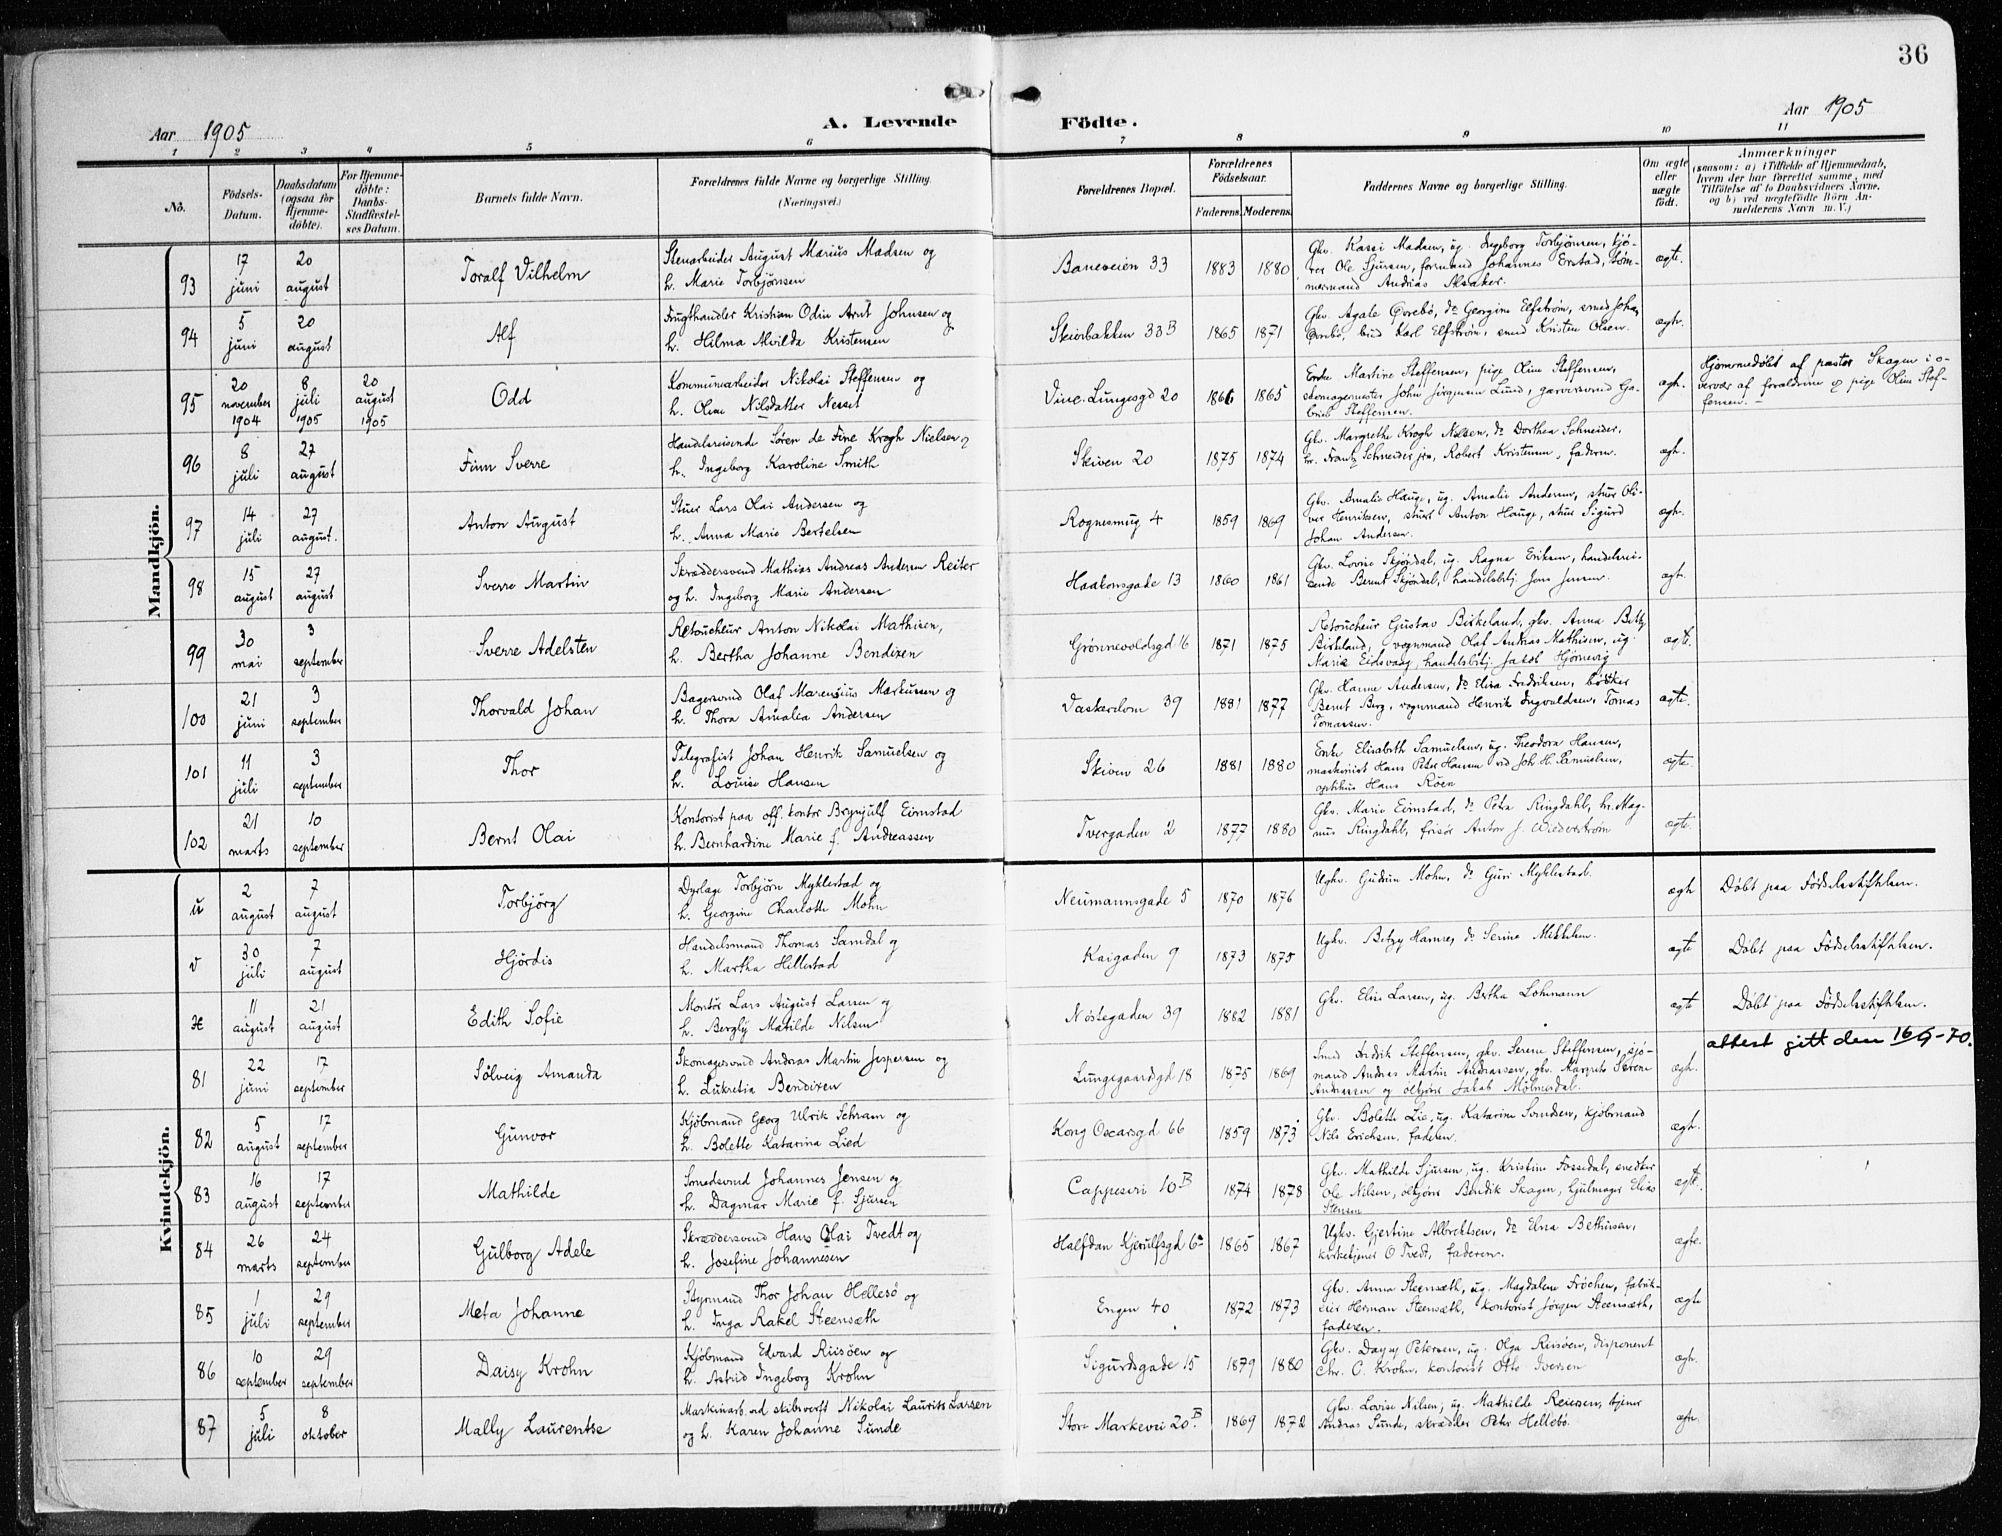 36
Aar 1905
A. Levende Födte.
Aar 1905
1 2 3 4 5 6 7 8 9 10 11
No.
Födsels-
Datum.
Daabsdatum
(ogsaa for
Hjemme-
döbte).
For Hjemme-
döbte:
Daabs-
Stadfæstel-
ses Datum.
Barnets fulde Navn.
Forældrenes fulde Navne og borgerlige Stilling.
(Næringsvei.)
Forældrenes Bopæl.
Forældrenes
Födselsaar.
Faderens. Moderens.
Faddernes Navne og borgerlige Stilling.
Om ægte
eller
uægte
födt.
Anmærkninger
(saasom: a) i Tilfælde af Hjemmedaab,
hvem der har forrettet samme, med
Tilföielse af to Daabsvidners Navne,
og b) ved uægtefödte Börn An-
melderens Navn m. V.)
Mandkjön.
93
17 juni
20 august
Toralf Vilhelm
Stenarbeider August Marius Madsen og
h. Marie Torbjörnsen
Baneveien 33
1883 1880
Gkv. Kassi Madsen, ug. Ingeborg Torbjörnsen, kjö-
rer Ole Sjursen, formand Johannes Erstad, töm-
mermand Andrias
ægte.
94
5 juni
20 august
Alf
Frugthandler Kristian Odin Arnt Johnsen og
h. Hilma Alvilda Kristensen
Skivebakken 33B
1865 1871
Gkv. Agate do Georgine Elfström, smed Johan
Karl Elfström, smed Kristen Olsen.
ægte.
95
20 november 1904
8 juli 1905
20 august 1905
Odd
Kommunearbeider Nikolai Steffensen og
h. Oline Nilsdatter Nesset
Vinc. Lungesgd 20
1866 1865
Enke Martine Steffensen, pige Oline Steffensen,
skomagermester John Jörgensen Lund, garversvend Ga-
briel Steffensen.
ægte.
Hjemmedöbt af pastor Skagen i o-
vervær af forældrene og pige Oline Stef-
fensen.-
96
8 juli
27 august
Finn Sverre
Handelsreisende Sören de Fine Krogh Nielsen og
h. Ingeborg Karoline Smith
Skiven 20
1875 1874
Gkv. Margrethe Krogh Nielsen, do Dorthea Schneider,
hr. Frantz Schneider jrn, Robert Kristensen, faderen.
ægte.
97
14 juli
27 august.
Anton August
Stuer Lars Olai Andersen og
h. Anna Marie Bertelsen
Rognesmug 4
1859 1869
Gkv. Amalie Hauge, ug. Amalie Andersen, stuer Oli-
ver Henriksen, stuer Anton Hauge, stuer Sigurd
Johan Andersen.
ægte.
98
15 august
27 august
Sverre Martin
Skræddersvend Mathias Andreas Andersen Reiter
og h. Ingeborg Marie Andersen
Haakonsgade 13
1860 1861
Gkv. Lovise Skjöndal, ug. Ragna Eriksen, handelsrei-
sende Bernt Skjöndal, handelsbtj Jens Jensen.
ægte.
99
30 mai
3 september
Sverre Adelsten
Retoucheur Anton Nikolai Mathisen,
h. Bertha Johanne Bendixen
Grönnevoldsgd 16
1871 1875
Retoucheur Gustav Birkeland, gkv. Anna Betty
Birkeland, vognmand Olaf Andreas Mathisen, ug.
Marie Eidsvaag, handelsbtj. Jacob Hjörnevig
ægte.
100
21 juni
3 september
Thorvald Johan
Bagersvend Olaf Marensius Markussen og
h. Thora Amalia Andersen
Vaskerelven 39
1881 1877
Gkv. Hanne Andersen, do Elisa Fredriksen, bödker
Bernt Berg, vognmand Henrik Ingvaldsen, Tomas
Tomassen.
ægte.
101
11 juli
3 september
Thor
Telegrafist Johan Henrik Samuelsen og
h. Louise Hansen
Skiven 26
1881 1880
Enke Elisabeth Samuelsen, ug. Theodora Hansen,
maskinist Hans Peter Hansen ved Joh. H. Samuelsen,
optikus Hans Röen
ægte.
102
21 marts
10 september
Bernt Olai
Kontorist paa off. kontor Brynjulf Eimstad
h. Bernhardine Marie f. Andreassen
Tvergaden 2
1877 1880
Gkv. Marie Eimstad, do Petra Ringdahl, hr. Mag-
nus Ringdahl, frisör Anton J. Wiederström
ægte.
Kvindekjön.
u
2 august
7 august
Torbjörg
Dyrlæge Torbjörn Myklestad og
h. Georgine Charlotte Mohn
Neumannsgade 5
1870 1876
Ugkv. Gudrun Mohn, do Guri Myklestad.
ægte
Döbt paa Födselsstiftelsen.
v
30 juli
7 august
Hjördis
Handelsmand Thomas Samdal og
h. Martha Hillestad
Kaigaden 9
1873 1875
Ugkv. Betzy Hamre, do Serine Mikkelsen.
ægte
Döbt paa Födselsstiftelsen.
11 august
21 august
Edith Sofie
Montör Lars August Larsen og
h. Bergly Matilde Nilsen
Nöstegaden 39
1882 1881
Gkv. Elise Larsen, ug. Bertha Lohmann
ægte
Döbt paa Födselsstiftelsen.
attest gitt den 16/9-70.
81
22 juni
17 september
Sölveig Amanda
Skomagersvend Andreas Martin Jespersen og
h. Lukretia Bendixen
Lungegaardsgd 18
1875 1869
Smed Fredik Steffensen, gkv. Serene Steffensen, sjö-
mand Andreas Martin Andreassen, gkv. Margrete Serene
Andreassen og öltjörer Jakob Mölmesdal.
ægte.
82
5 august
17 september
Gunvor
Kjöbmand Georg Ulrik Schram og
h. Bolette Katarina Lied
Kong Oscarsgd 66
1859 1873
Gkv. Bolette Lie, ug. Katarine Svendsen, kjöbmand
Nils Erichsen, faderen.
ægte.
83
16 august
17 september
Mathilde
Smedsvend Johannes Jensen og
h. Dagmar Marie f. Sjursen
Cappesvei 10B
1874 1878
Gkv. Mathilde Sjursen, ug. Kristine Fossedal, snedker
Ole Nilsen, öltjörer Bendik Skagen, hjulmager Elias
Stensen
ægte.
84
26 marts
24 september
Gulborg Adele
Skræddersvend Hans Olai Tvedt og
h. Josefine Johannesen
Halfdan Kjerulfsgd 6a
1865 1867
Ugkv. Gjertine Albrektsen, do Elna Bethuisen,
kirketjener O Tvedt, faderen.
ægte.
85
1 juli
29 september
Meta Johanne
Styrmand Thor Johan Hellesö og
h. Inga Rakel Steensæth
Engen 40
1872 1873
Gkv. Anna Steensæth, ug. Magdalene Fröchen, fabrik-
eier Herman Steensæth, kontorist Jörgen Steensæth,
faderen.
ægte
86
10 september
29 september
Daisy Krohn
Kjöbmand Edvard Riisöen og
h. Astrid Ingeborg Krohn
Sigurdsgade 15
1879 1880
Gkv. Dagny Petersen, ug. Olga Riisöen, disponent
Chr. C. Krohn, kontorist Otto Iversen
ægte.
87
5 juli
8 oktober
Mally Laurentse
Maskinarb. ved skibsverft Nikolai Laurits Larsen
og h. Karen Johanne Sunde
Store Markevei 20B
1869 1872
Gkv. Lovise Nilsen, ug. Mathilde Reiersen, tjener
Andreas Sunde, skrædder Peter Hellebö.
ægte.